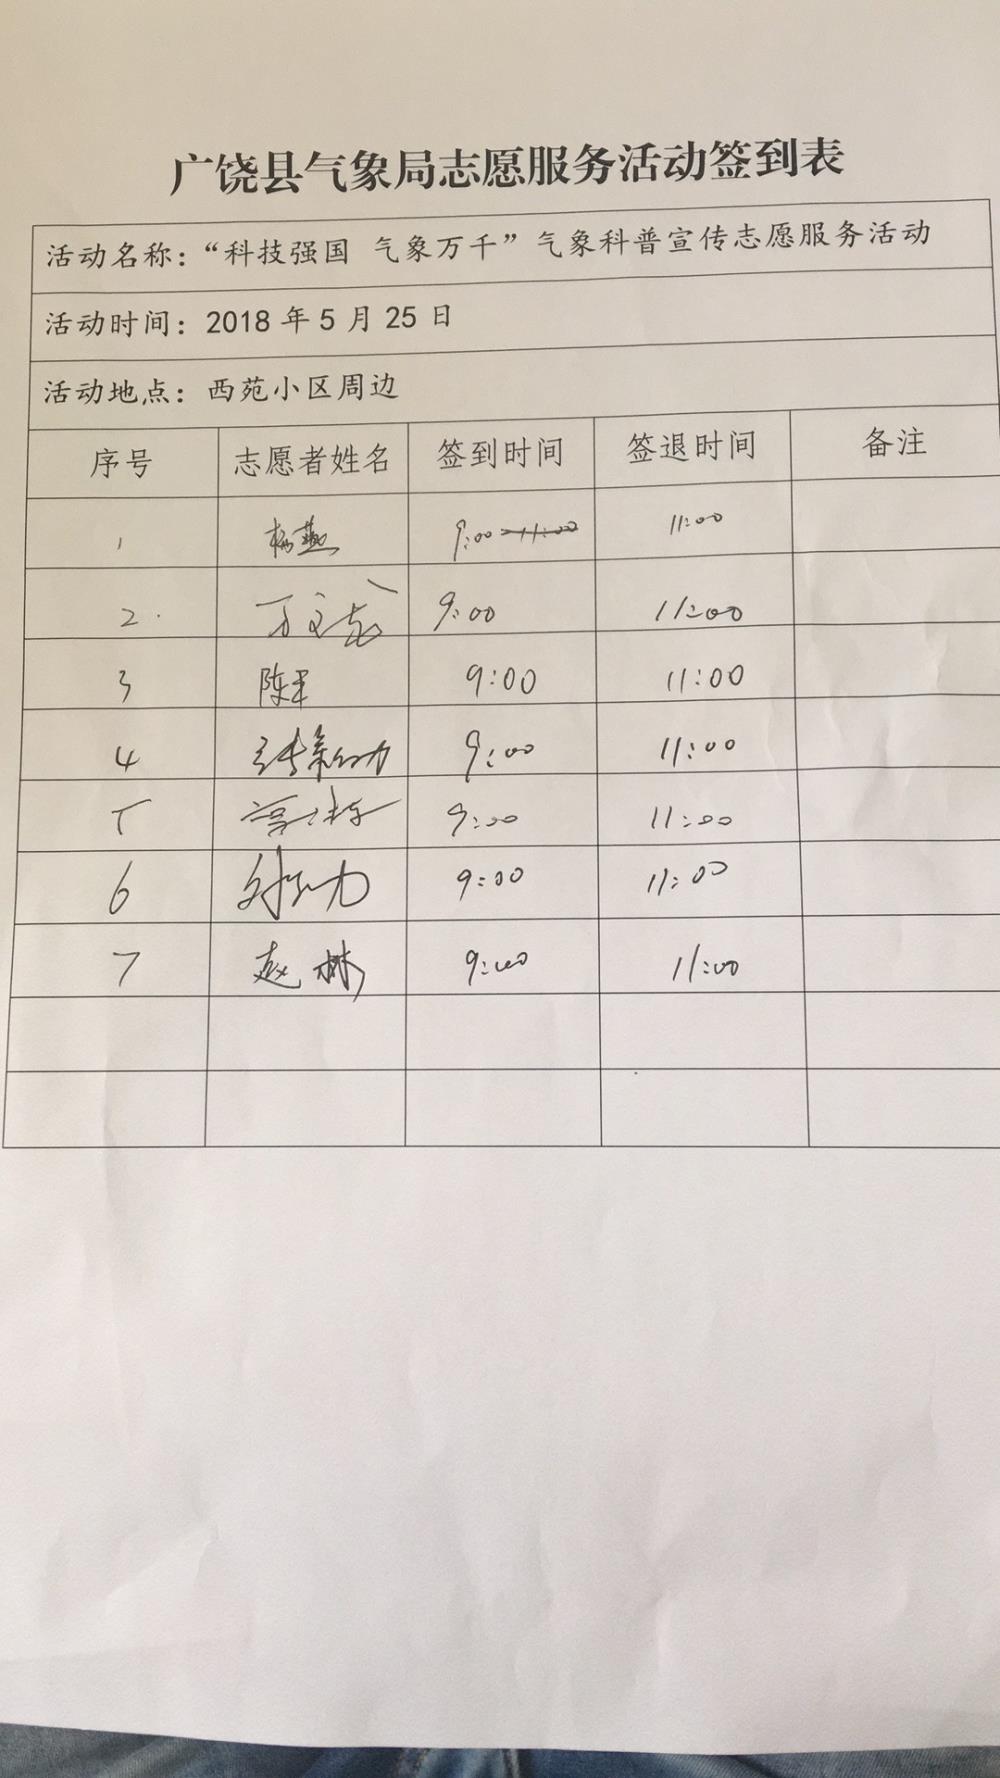 广饶县气象局志愿服务活动签到表
活动名称：“科技强国 气象万千”气象科普宣传志愿服务活动
活动时间：2018 年 5 月 25 日
活动地点：西苑小区周边
序号 志愿者姓名 签到时间 签退时间 备注
1 杨燕 9:00 11:00
2 9:00 11:00
3 陈军 9:00 11:00
4 9:00 11:00
5 9:00 11:00
6 9:00 11:00
7 赵彬 9:00 11:00